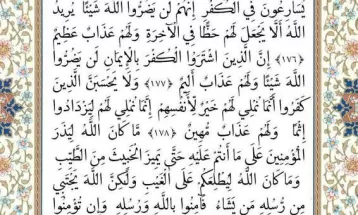 يُسَارِعُونَ فِي الْكُفْرِ إِنَّهُمْ لَن يَضُرُّوا اللَّهَ شَيْئًا يُرِيدُ
اللَّهُ أَلَّا يَجْعَلَ لَهُمْ حَظًّا فِي الْآخِرَةِ وَلَهُمْ عَذَابٌ عَظِيمٌ
﴿١٧٦﴾ إِنَّ الَّذِينَ اشْتَرَوُا الْكُفْرَ بِالْإِيمَانِ لَن يَضُرُّوا
اللَّهَ شَيْئًا وَلَهُمْ عَذَابٌ أَلِيمٌ ﴿١٧٧﴾ وَلَا يَحْسَبَنَّ الَّذِينَ
كَفَرُوا أَنَّمَا نُمْلِي لَهُمْ خَيْرٌ لِّأَنفُسِهِمْ إِنَّمَا نُمْلِي لَهُمْ لِيَزْدَادُوا
إِثْمًا وَلَهُمْ عَذَابٌ مُّهِينٌ ﴿١٧٨﴾ مَّا كَانَ اللَّهُ لِيَذَرَ
الْمُؤْمِنِينَ عَلَىٰ مَا أَنتُمْ عَلَيْهِ حَتَّىٰ يَمِيزَ الْخَبِيثَ مِنَ الطَّيِّبِ
وَمَا كَانَ اللَّهُ لِيُطْلِعَكُمْ عَلَى الْغَيْبِ وَلَٰكِنَّ اللَّهَ يَجْتَبِي
مِن رُّسُلِهِ مَن يَشَاءُ فَآمِنُوا بِاللَّهِ وَرُسُلِهِ وَإِن تُؤْمِنُوا